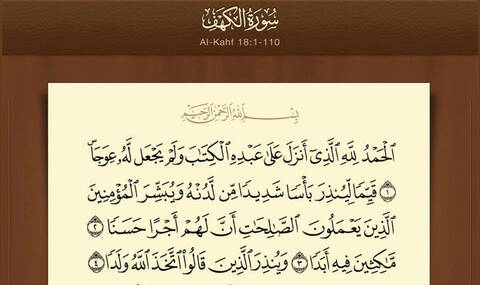 سُورَةُ الكَهْفِ
Al-Kahf 18:1-110
بِسْمِ ٱللَّهِ ٱلرَّحْمَٰنِ ٱلرَّحِيمِ
ٱلْحَمْدُ لِلَّهِ ٱلَّذِىٓ أَنزَلَ عَلَىٰ عَبْدِهِ ٱلْكِتَٰبَ وَلَمْ يَجْعَل لَّهُۥ عِوَجَاۜ
١ قَيِّمًا لِّيُنذِرَ بَأْسًا شَدِيدًا مِّن لَّدُنْهُ وَيُبَشِّرَ ٱلْمُؤْمِنِينَ
ٱلَّذِينَ يَعْمَلُونَ ٱلصَّٰلِحَٰتِ أَنَّ لَهُمْ أَجْرًا حَسَنًا ٢
مَّٰكِثِينَ فِيهِ أَبَدًا ٣ وَيُنذِرَ ٱلَّذِينَ قَالُوا۟ ٱتَّخَذَ ٱللَّهُ وَلَدًا ٤